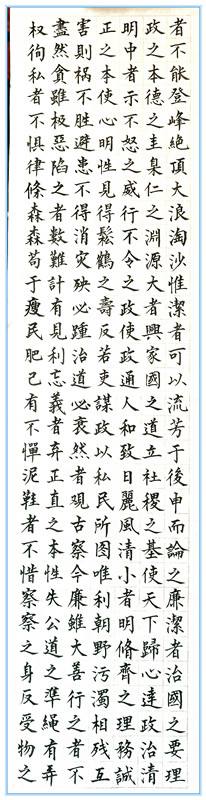 者不能登峰絕頂大浪淘沙惟潔者可以流芳于後申而論之廉潔者治國之要理
政之本德之圭臬仁之淵源大者興家國之道立社稷之基使天下歸心達政治清
明中者示不怒之威行不令之政使政通人和致日麗風清小者明脩齊之理務誠
正之本使心明性見得鬆鶴之壽反若吏謀政以私民所图唯利朝野污濁相残互
害則祸不勝避患不得消灾殃必踵治道必衰然者現古察今廉雖大善行之者不
盡然貪雖極惡陷之者數難計有見利忘義者弃正直之本性失公道之準繩有弄
权徇私者不惧律條森森苟于瘦民肥己有不憚泥鞋者不惜察察之身反受物之